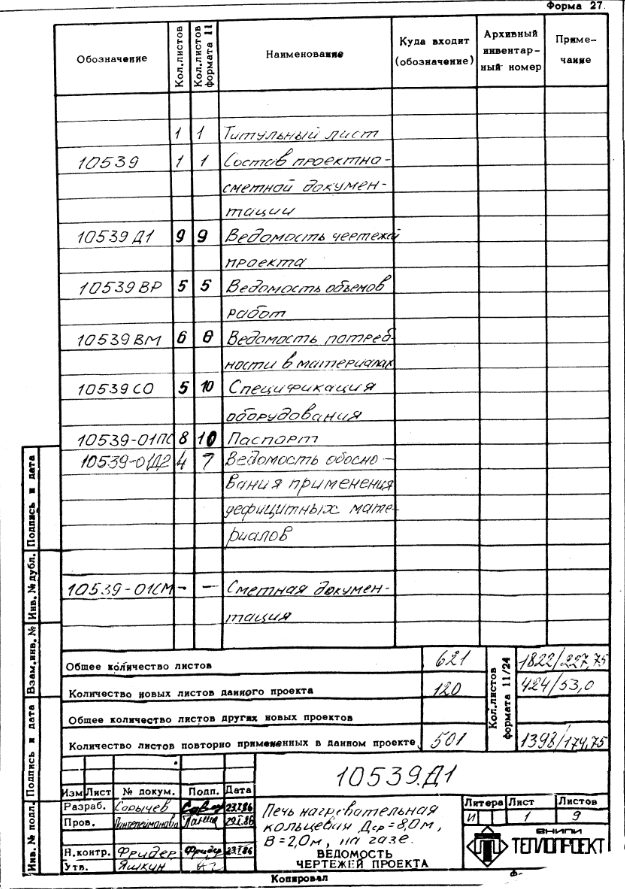 Форма 27.
Обозначение Кол.листов Кол.листов формата 11 Наименование Куда входит (обозначение) Архивный инвентарный номер Примечание
1 1 Титульный лист
10539 1 1 Состав проектно-
сметной докумен-
тации
10539 Д1 9 9 Ведомость чертежей
проекта
10539 ВР 5 5 Ведомость объемов
работ
10539 ВМ 6 8 Ведомость потреб-
ности в материалах
10539 СО 5 10 Спецификация
оборудования
10539-01ПС 8 10 Паспорт
10539-01Д2 4 7 Ведомость обосно-
вания применения
дефицитных мате-
риалов
10539-01СМ - - Сметная докумен-
тация
Общее количество листов 621 Кол.листов формата 11/24 1822/227,75
Количество новых листов данного проекта 120 424/53,0
Общее количество листов других новых проектов
Количество листов повторно примененных в данном проекте 501 1398/174,75
10539.Д1
Изм Лист № докум. Подп. Дата
Разраб. Сорычев 23.1.86
Пров. 29.1.86
Н.контр. Фридер Фридер 23.1.86
Утв. Яшкин
Печь нагревательная
кольцевая Дср=8,0м,
В=2,0м, на газе.
ВЕДОМОСТЬ
ЧЕРТЕЖЕЙ ПРОЕКТА
Литера Лист Листов
И 1 9
ВНИПИ
ТЕПЛОПРОЕКТ
Копировал
Подпись и дата
Инв. № дубл.
Взам.инв. №
Подпись и дата
Инв. № подл.